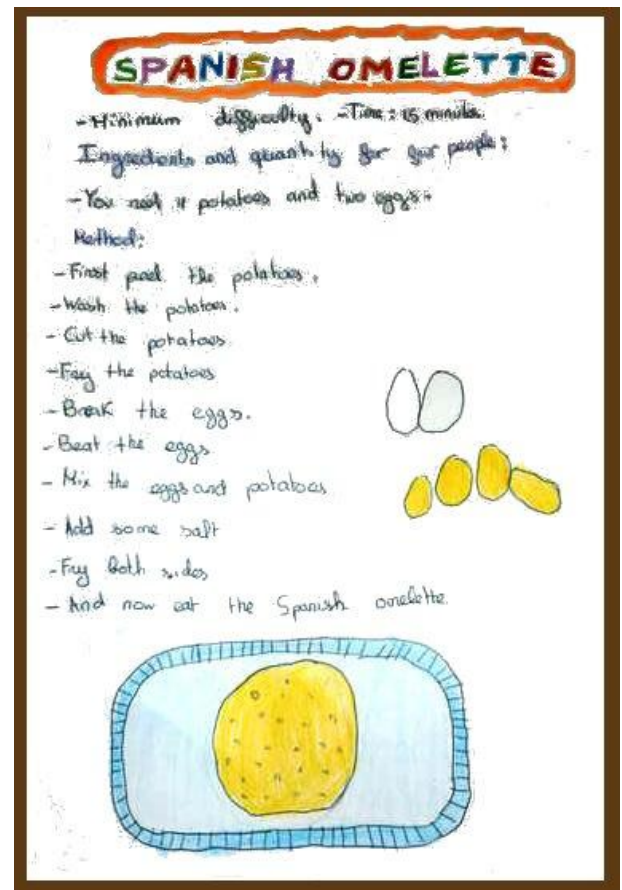 SPANISH OMELETTE
- Minimum difficulty. - Time: 15 minutes
Ingredients and quantity for four people:
- You need 4 potatoes and two eggs.
Method:
- First peel the potatoes.
- Wash the potatoes.
- Cut the potatoes
- Fry the potatoes
- Break the eggs.
- Beat the eggs
- Mix the eggs and potatoes
- Add some salt
- Fry both sides
- And now eat the Spanish omelette